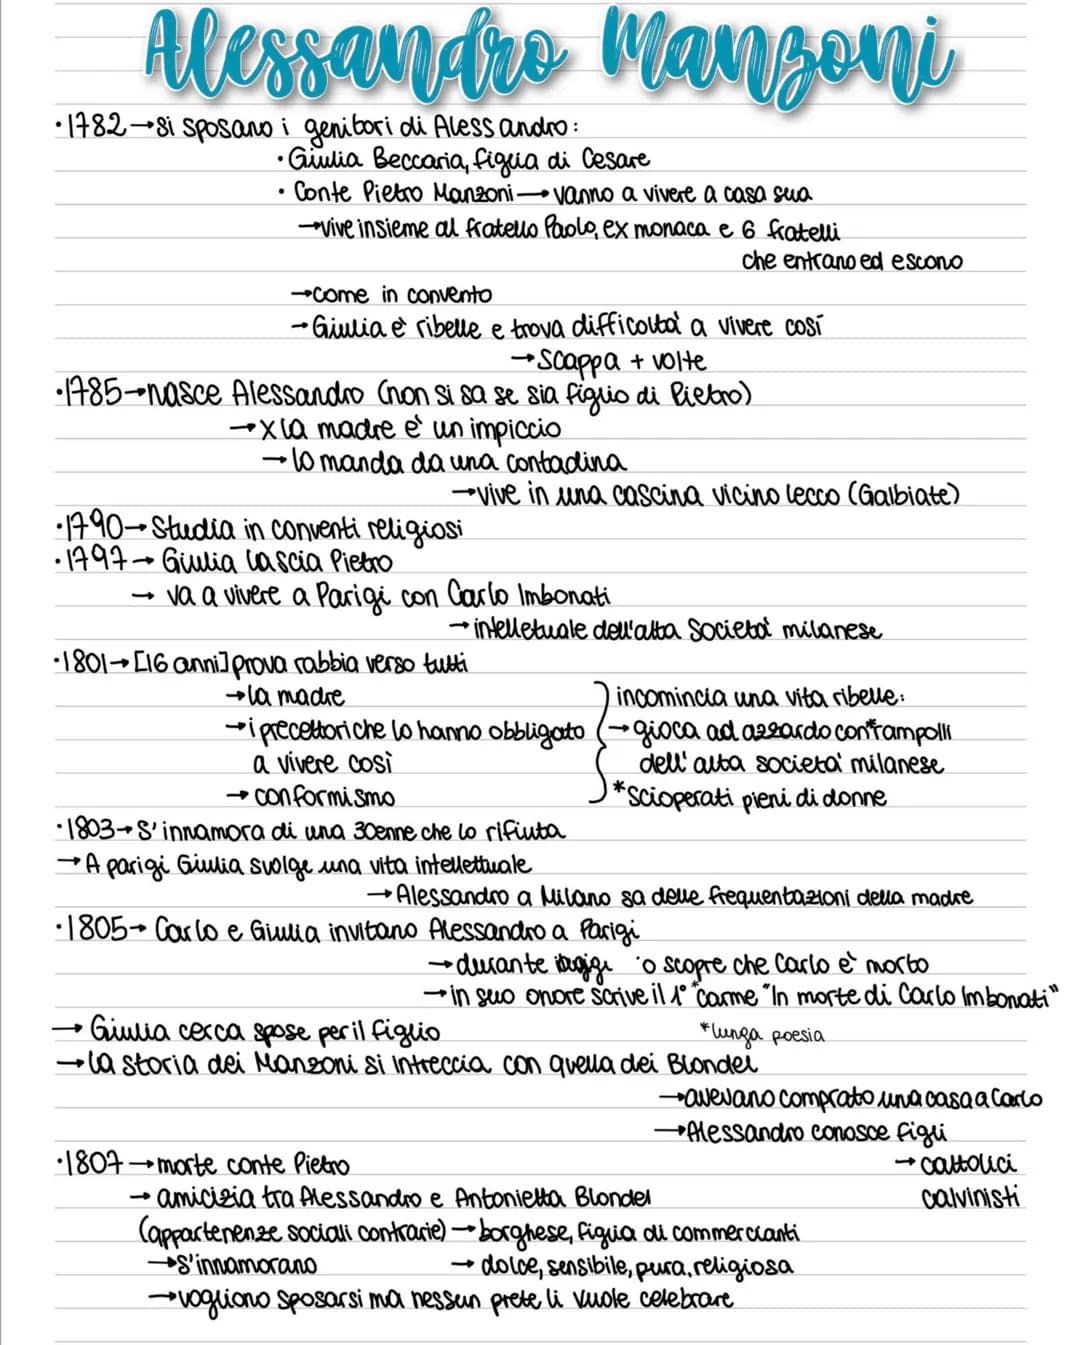 Alessandro Manzoni
•1782→si sposano i genitori di Alessandro:
•Giulia Beccaria, figlia di Cesare
• Conte Pietro Manzoni→ vanno a vivere a casa sua
→vive insieme al fratello Paolo, ex monaca e 6 fratelli
che entrano ed escono
→come in convento
→Giulia è ribelle e trova difficoltà a vivere così
→scappa + volte
•1785→nasce Alessandro (non si sa se sia figlio di Pietro)
→x la madre è un impiccio
→lo manda da una contadina
→vive in una cascina vicino lecco (Galbiate)
•1790→Studia in conventi religiosi
•1797→ Giulia lascia Pietro
→ va a vivere a Parigi con Carlo Imbonati
→intelletuale dell'alta Società milanese
•1801→[16 anni] prova rabbia verso tutti
→la madre
→i precettori che lo hanno obbligato
a vivere così
→ conformismo
} incomincia una vita ribelle:
→gioca ad azzardo con*rampolli
dell'alta società milanese
*scioperati pieni di donne
•1803→S'innamora di una 30enne che lo rifiuta
→A parigi Giulia svolge una vita intellettuale
→Alessandro a Milano sa delle frequentazioni della madre
•1805→ Carlo e Giulia invitano Alessandro a Parigi
→durante o scopre che Carlo è morto
→in suo onore scrive il 1° *carme "In morte di Carlo Imbonati"
*lunga poesia
→ Giulia cerca spose per il figlio
→la storia dei Manzoni si intreccia con quella dei Blondel
→avevano comprato una casa a Carlo
→Alessandro conosce figli
→ cattolici
calvinisti
•1807→morte conte Pietro
→ amicizia tra Alessandro e Antonietta Blondel
(appartenenze sociali contrarie)→borghese, figlia di commercianti
→S'innamorano → dolce, sensibile, pura, religiosa
→vogliono sposarsi ma nessun prete li vuole celebrare